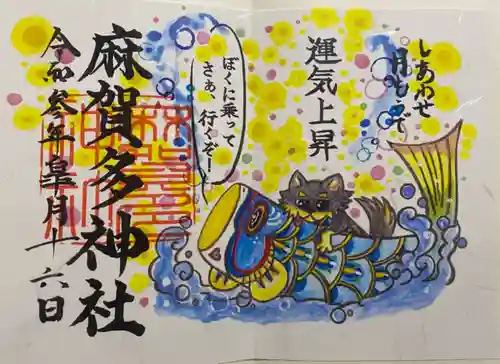 しあわせ
月もうで
運気上昇
ぼくに乗って
さぁ、行くぞー!
麻賀多神社
令和参年皐月十六日